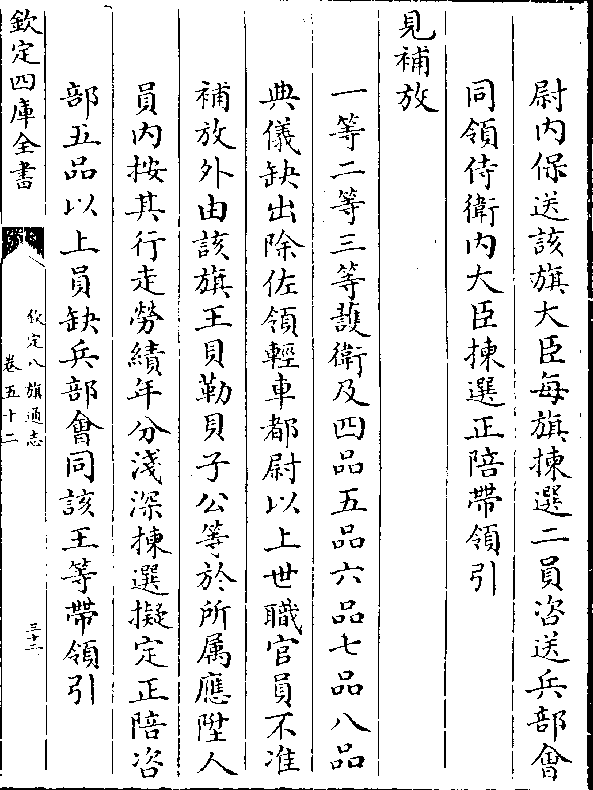 尉内保送該旗大臣每旗揀選二員咨送兵部會
同領侍衛内大臣揀選正陪帶領引
見補放
一等二等三等護衛及四品五品六品七品八品
典儀缺出除佐領輕車都尉以上世職官員不准
補放外由該旗王貝勒貝子公等於所属應陞人
員内按其行走勞績年分淺深揀選擬定正陪咨
部五品以上員缺兵部會同該王等帶領引
欽定四庫全書
欽定八旗通志
卷五十二
三十二